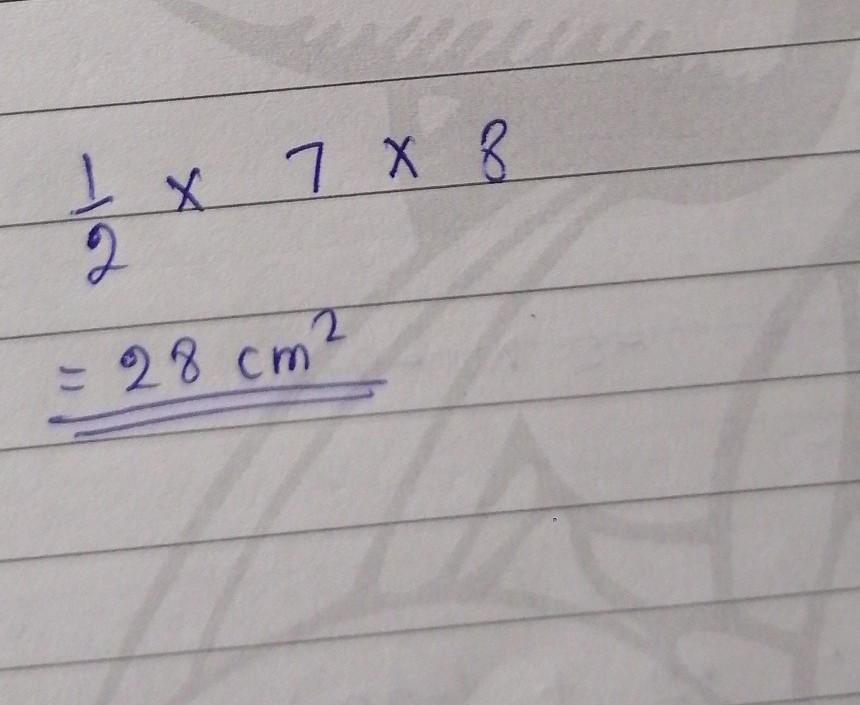 1/2 x 7 x 8
= 28 cm²